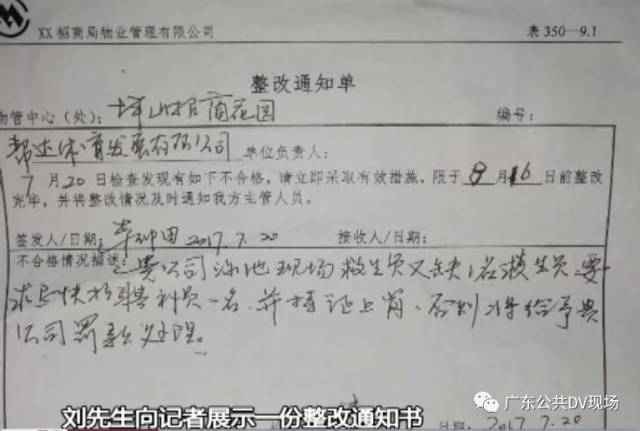 XX招商局物业管理有限公司
表350—9.1
整改通知单
物管中心(处): 坪山招商花园 编号:
帮达体育发展有限公司 单位负责人:
7月20日检查发现有如下不合格,请立即采取有效措施,限于8月16日前整改
完毕,并将整改情况及时通知我方主管人员。
签发人/日期: 2017.7.20 接收人/日期:
不合格情况描述: 贵公司泳池现场救生员又缺1名救生员,要
求尽快招聘补员一名,并持证上岗,否则将给予贵
公司罚款处理。
日期: 2017
刘先生向记者展示一份整改通知书
广东公共DV现场